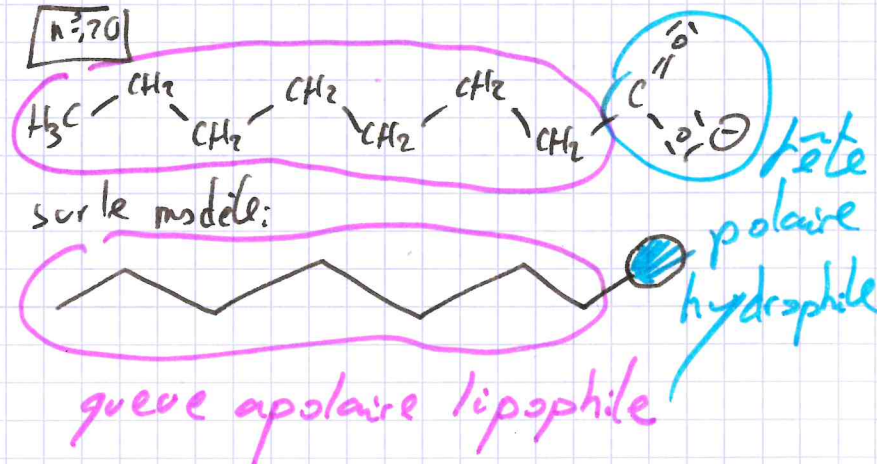 n°70
H₃C CH₂ CH₂ CH₂ CH₂ CH₂ CH₂ C O O ⊖
sur le modèle:
tête
polaire
hydrophile
queue apolaire lipophile